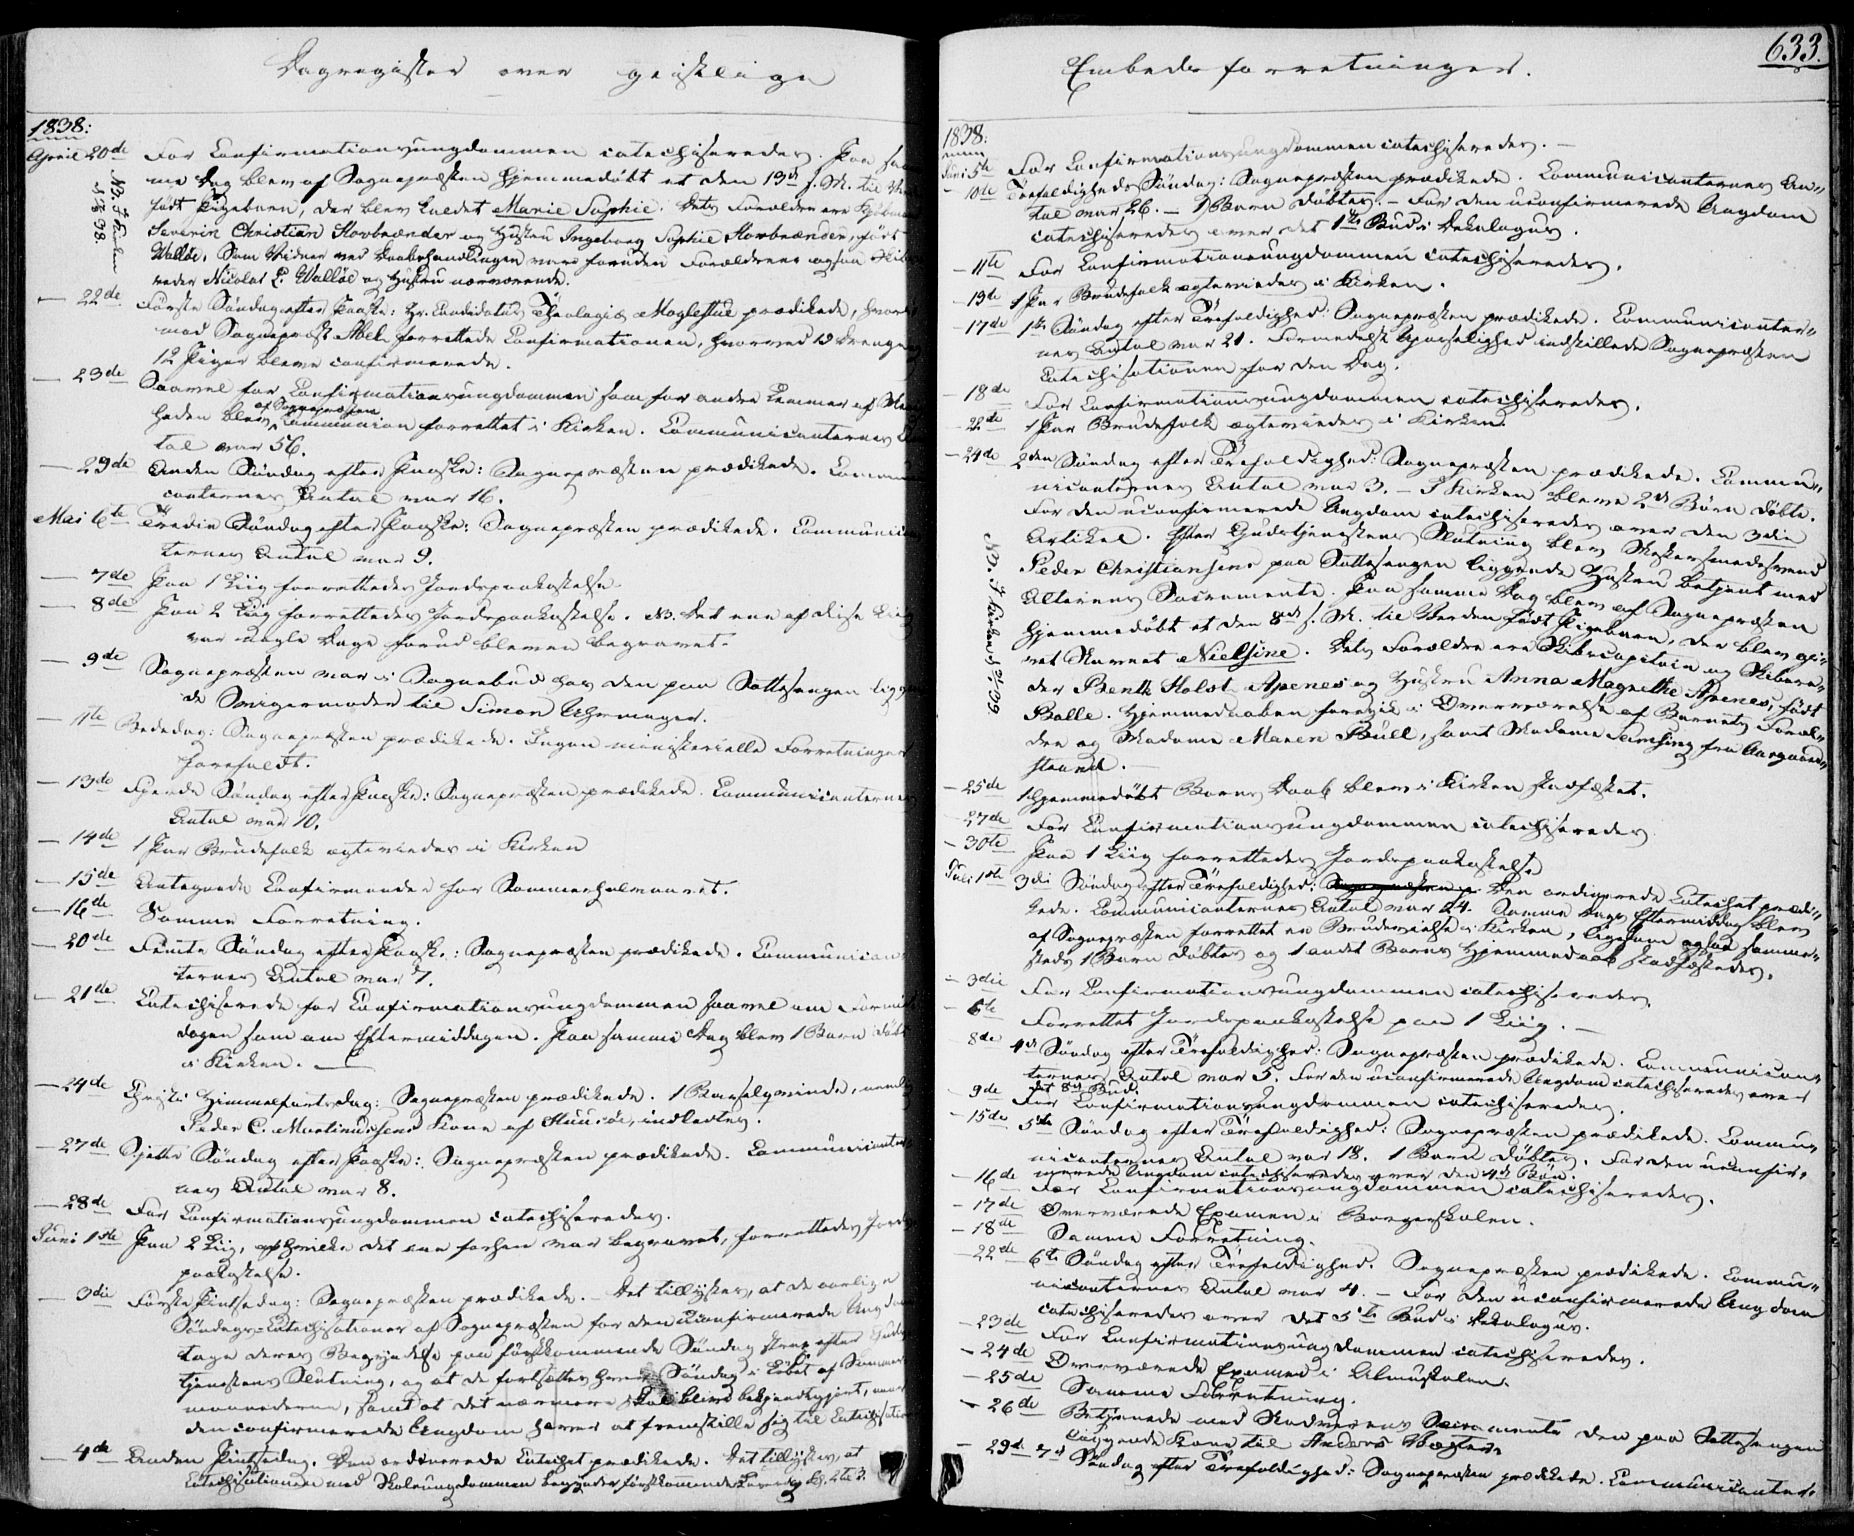 Dagregister over geistlige
1838:
April 20de For Confirmationsungdommen catechiseredes. Paa sam-
me Dag blev af Sognepræsten hjemmedøbt et den 19d f. M. til
født Pigebarn, der blev kaldet Marie Sophie. Dets Forældre ere Kjøbm
Severin Christian Stovbrænder og Hustru Ingeborg Sophie Stovbrænder, født
Walløe. Som Vidner ved Daabshandlingen vare foruden Forældrene ogsaa
reder Nicolai E. Walløe og Hustru nærværende.
NB. I Kirken d. 38.
— 22de Første Søndag efter Paaske: Hr. Candidatus Theologiæ Moglestue prædikede, hvor
mod Sognepræst Abel forrettede Confirmationen, hvorved 19 Drenge og
12 Piger bleve confirmerede.
— 23de Saavel for Confirmationsungdommen som for andre Lemmer af Menig-
heden blev af Sognepræsten Communion forrettet i Kirken. Communicanternes An-
tal var 56.
— 29de Anden Søndag efter Paaske: Sognepræsten prædikede. Communi-
canternes Antal var 16.
Mai 6te Tredie Søndag efter Paaske: Sognepræsten prædikede. Communican-
ternes Antal var 9.
— 7de Paa 1 Liig forrettedes Jordspaakastelse.
— 8de Paa 2 Liig forrettedes Jordspaakastelse. NB. Det ene af disse Liig
var nogle Dage forud bleven begravet.
— 9de Sognepræsten var i Sognebud hos den paa Sottesengen liggen-
de Svigermoder til Simon Uhrmager.
— 11te Bededag: Sognepræsten prædikede. Ingen ministerielle Forretninger
forefaldt.
— 13de Fjerde Søndag efter Paaske: Sognepræsten prædikede. Communicanternes
Antal var 10.
— 14de 1 Par Brudefolk ægteviedes i Kirken
— 15de Antegnede Confirmander for Sommerhalvaaret.
— 16de Samme Forretning.
— 20de Femte Søndag efter Paaske: Sognepræsten prædikede. Communican-
ternes Antal var 7.
— 21de Catechiserede for Confirmationsungdommen saavel om Formid-
dagen som om Eftermiddagen. Paa samme Dag blev 1 Barn døbt
i Kirken. —
— 24de Christi Himmelfartsdag: Sognepræsten prædikede. 1 Barselqvinde, nemlig
Peder C. Martinussens Kone af indlededes.
— 27de Sjette Søndag efter Paaske: Sognepræsten prædikede. Communicanter-
nes Antal var 8.
— 28de For Confirmationsungdommen catechiseredes.
Juni 1ste Paa 2 Liig, af hvilke det ene forhen var begravet, forrettedes Jords-
paakastelse.
— 3die Første Pintsedag: Sognepræsten prædikede. — Det tillystes, at de aarlige
Søndags-Catechisationer af Sognepræsten for den uconfirmerede Ungdom
tage deres Begyndelse paa førstkommende Søndag strax efter Guds-
tjenestens Slutning, og at de fortsættes hver Søndag i Løbet af Sommer-
maanederne, samt at det nærmere skal blive bekjendtgjort, naar
den confirmerede Ungdom haver at fremstille sig til Catechisation
— 4de Anden Pintsedag. Den ordinerede Catechet prædikede. Det tillystes, at
Catechisationen med Skoleungdommen begynder førstkommende Løverdag Kl. 2 til 3.
Embedsforretninger.
633.
1838:
Juni 5te For Confirmationsungdommen catechiseredes. —
— 10de Trefoldigheds Søndag: Sognepræsten prædikede. Communicanternes An-
tal var 26. — 1 Barn døbtes. — For den uconfirmerede Ungdom
catechiseredes over det 1ste Bud i Dekalogus.
— 11te For Confirmationsungdommen catechiseredes.
— 13de 1 Par Brudefolk ægteviedes i Kirken.
— 17de 1ste Søndag efter Trefoldighed: Sognepræsten prædikede. Communicanter-
nes Antal var 21. Formedelst Upasselighed indstillede Sognepræsten
Catechisationen for den Dag.
— 18de For Confirmationsungdommen catechiseredes.
— 22de 1 Par Brudefolk ægteviedes i Kirken.
— 24de 2den Søndag efter Trefoldighed: Sognepræsten prædikede. Commu-
nicanternes Antal var 3. — I Kirken bleve 2de Børn døbte.
For den uconfirmerede Ungdom catechiseredes over den 3die
Artikel. Efter Gudstjenestens Slutning blev
Peder Christiansens paa Sottesengen liggende Hustru betjent med
Alterens Sacramente. Paa samme Dag blev af Sognepræsten
hjemmedøbt et den 8de f. M. til Verden født Pigebarn, der blev gi-
vet Navnet Nielsine. Dets Forældre ere Skibscapitain og Skibsre-
der Bent Holst Apenes og Hustru Anna Magrethe Apenes, født
Balle. Hjemmedaaben foregik i Overværelse af Barnets Foræl-
dre og Madame Maren Bull, samt Madame Semsing fra Aasgaard-
strand. —
NB. I Kirken d. 39.
— 25de 1 hjemmedøbt Barns Daab blev i Kirken stadfæstet.
— 27de For Confirmationsungdommen catechiseredes
— 30te Paa 1 Liig forrettedes Jordspaakastelse
Juli 1ste 3die Søndag efter Trefoldighed: Den ordinerede Catechet prædi-
kede. Communicanternes Antal var 24. Samme Dags Eftermiddag blev
af Sognepræsten forrettet en Brudevielse i Kirken, ligesom ogsaa samme-
steds 1 Barn døbtes og 1 andet Barns Hjemmedaab stadfæstedes.
— 3die For Confirmationsungdommen catechiseredes
— 6te Forrettet Jordspaakastelse paa 1 Liig. —
8de 4de Søndag efter Trefoldighed: Sognepræsten prædikede. Communican-
ternes Antal var 5. For den uconfirmerede Ungdom catechiseredes over
det 8de Bud.
— 9de For Confirmationsungdommen catechiseredes.
— 15de 5te Søndag efter Trefoldighed: Sognepræsten prædikede. Commu-
nicanternes Antal var 18. 1 Barn døbtes. For den uconfir-
merede Ungdom catechiseredes over den 4de Bøn.
— 16de For Confirmationsungdommen catechiseredes.
— 17de Overværede Examen i Borgerskolen.
— 18de Samme Forretning.
— 22de 6te Søndag efter Trefoldighed. Sognepræsten prædikede. Commu-
nicanternes Antal var 4. — For den uconfirmerede Ungdom
catechiseredes over det 5te Bud i Dekalogus.
— 23de For Confirmationsungdommen catechiseredes.
— 24de Overværede Examen i Almueskolen.
— 25de Samme Forretning.
— 26de Betjenede med Nadverens Sacramente den paa Sottesengen
liggende Kone til Anders
— 29de 7de Søndag efter Trefoldighed: Sognepræsten prædikede. Communicanter-